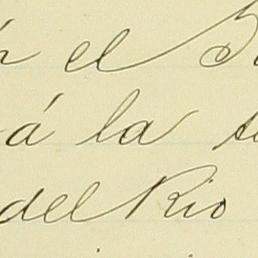 el
á la
del Rio